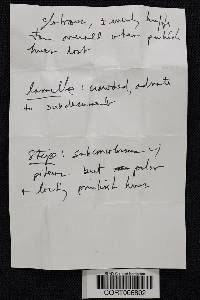 glabrous, evenly buff
tan overall when pinkish
hues lost
lamellae: crowded, adnate
to subdecurrent
stipe: subconcolorous w/
pileus but paler
+ lacking pinkish hues
CORT006802